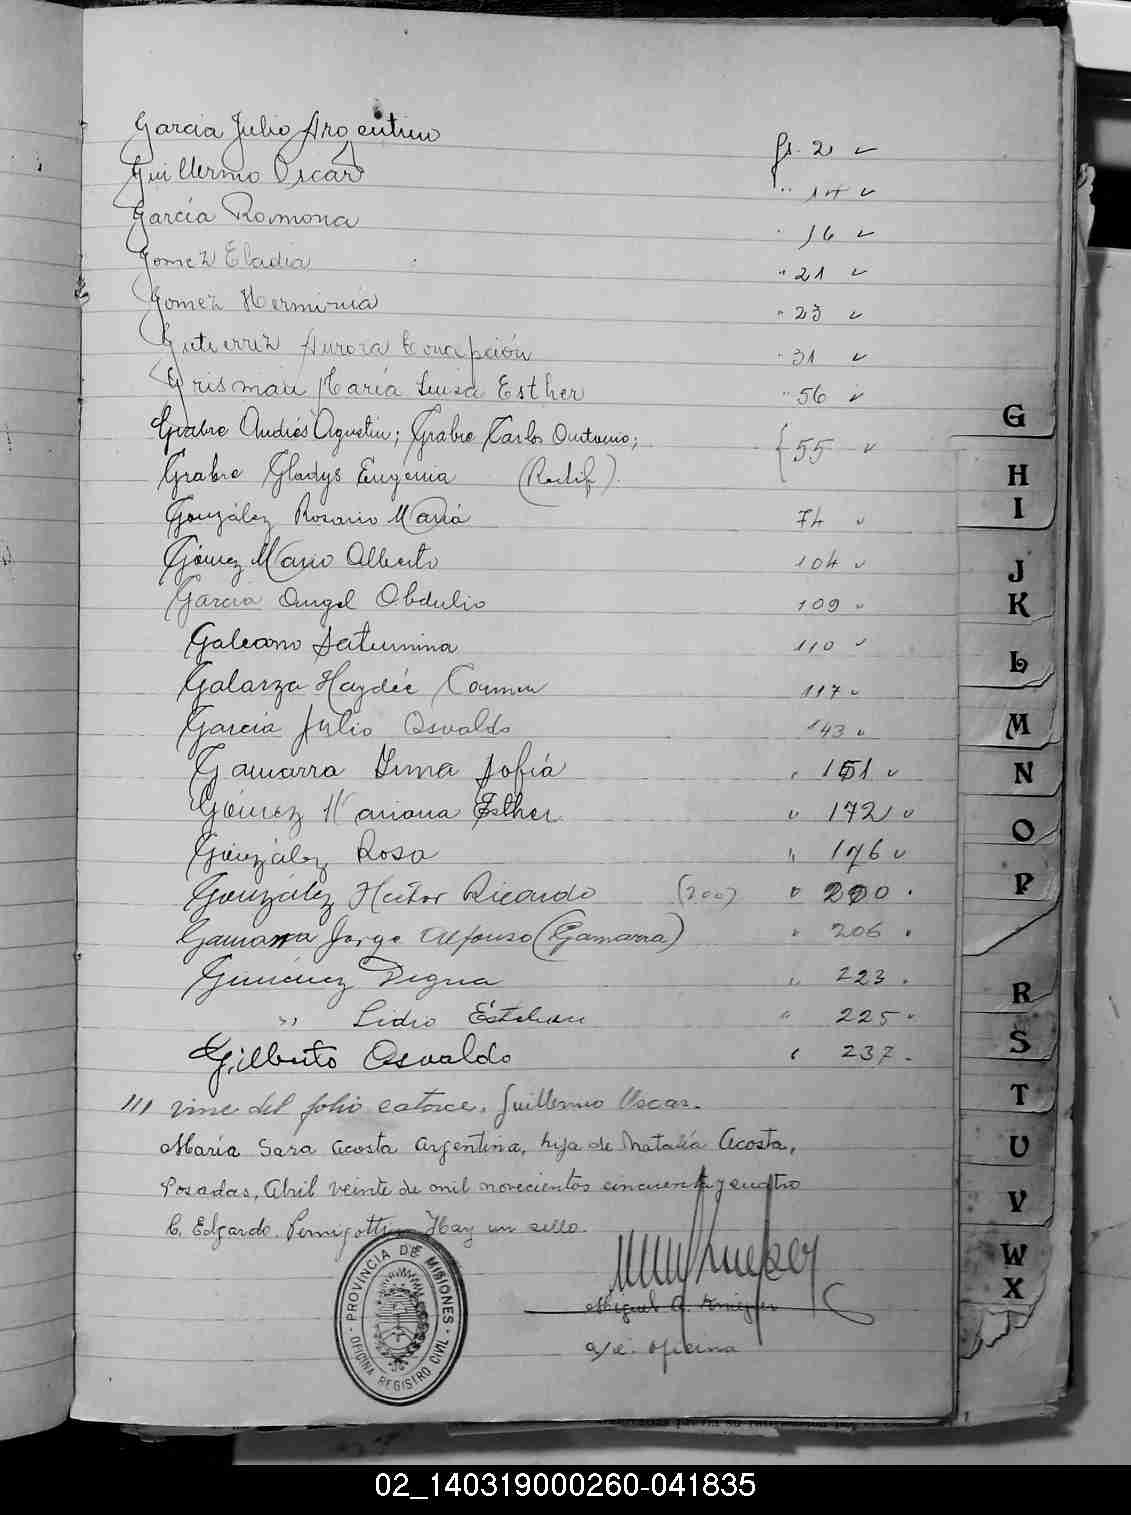 Garcia Julio Argentino fs. 2
Guillermo Oscar " 14
García Ramona " 16
Gomez Eladia " 21
Gomez Herminia " 23
Gutierrez Aurora Concepción " 31
Grisman María Luisa Esther " 56
Grabre Andrés Agustin; Grabre Carlos Antonio; { 55
Grabre Gladys Eugenia (Rectif).
González Rosario María 74
Gómez Mario Alberto 104
Garcia Angel Obdulio 109
Galeano Saturnina 110
Galarza Haydée Carmen 117
García Julio Osvaldo 143
Gamarra Sofía " 151
Gómez Mariana Esther " 172
González Rosa " 176
González Hector Ricardo (200) " 200
Gamarra Jorge Alfonso (Gamarra) " 206
Gimenez Digna " 223
" Lidio Esteban " 225
Gilberto Osvaldo " 237
/// viene del folio catorce. Guillermo Oscar.
María Sara Acosta Argentina, hija de Natalia Acosta,
Posadas, Abril veinte de mil novecientos cincuenta y cuatro
C. Edgardo. Hay un sello.
PROVINCIA DE MISIONES
OFICINA REGISTRO CIVIL
Miguel A.
a/c. oficina
G
H
I
J
K
L
M
N
O
P
R
S
T
U
V
W
X
02_140319000260-041835